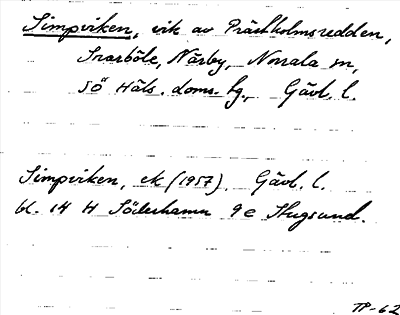 Simpviken, vik av Prästholmsredden,
Snarböle, Närby, Norrala sn,
SÖ Häls. doms. tg., Gävl. l.
Simpviken, ek (1957). Gävl. l.
bl. 14 H Söderhamn 9 e Stugsund.
TP-62